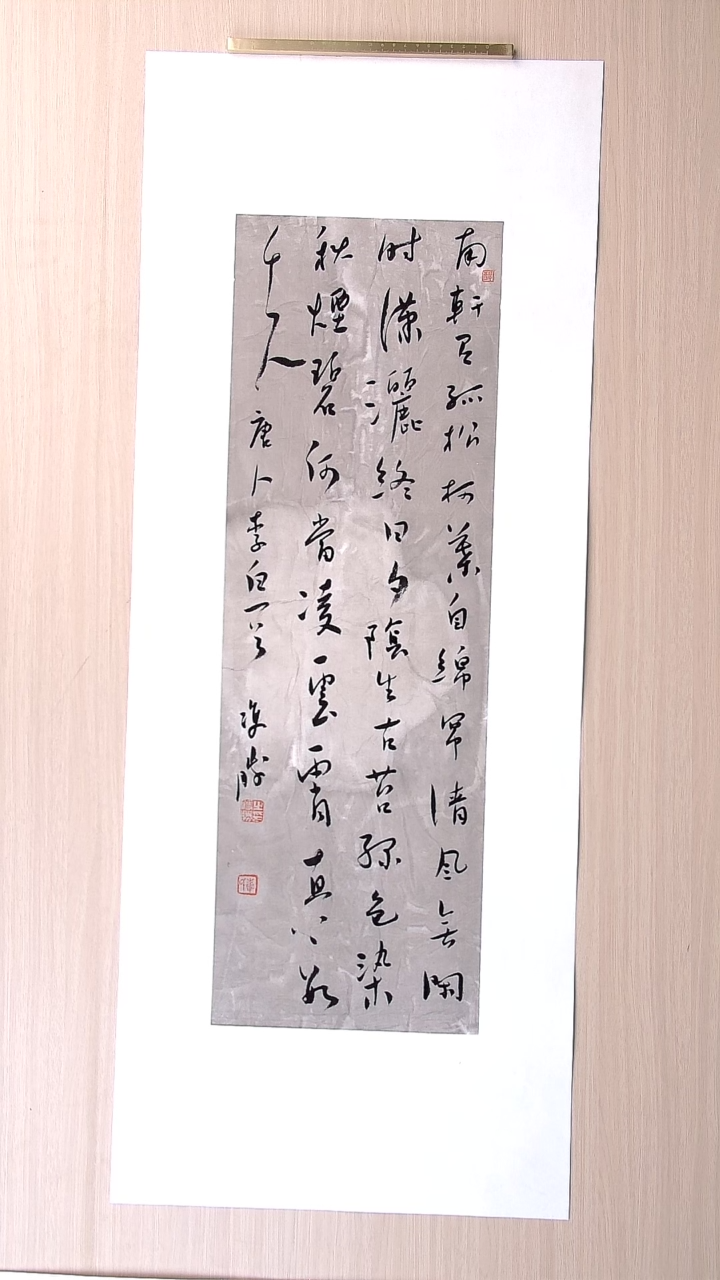 南軒有孤松柯葉自綿幂清風無閑
时瀟灑終日夕陰生古苔綠色染
秋煙碧何當凌雲霄直上數
千尺唐人李白一首